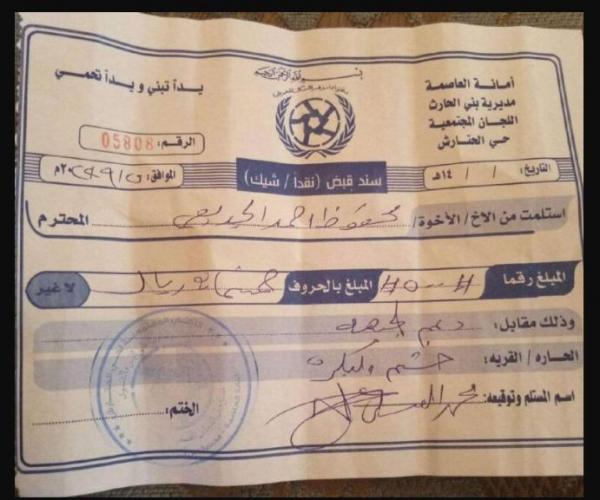 بسم الله الرحمن الرحيم
أمانة العاصمة
مديرية بني الحارث
اللجان المجتمعية
حي الحتارش
يداً تبني و يداً تحمي
الرقم: 05808
التاريخ: / / ١٤هـ
سند قبض (نقداً / شيك)
الموافق:
استلمت من الاخ/ الأخوة/ محفوظ احمد المحترم
المبلغ رقما #٥٠٠# المبلغ بالحروف خمسمائة ريال لا غير
وذلك مقابل: دعم الجبهة
الحاره / القريه:
اسم المستلم وتوقيعه: محمد
الختم: